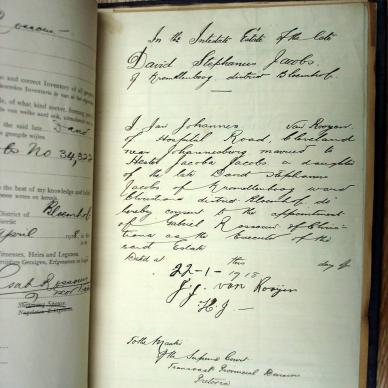 In the Intestate Estate of the late
David Stephanus Jacobs.
of Kromdlenboog district Bloemhof.
I Jan Johannes van Rooyen
of Hospital Road, Cleveland
near Johannesburg married to
Hester Jacoba Jacobs a daughter
of the late David Stephanus
Jacobs of Kromdlenboog ward
district Bloemhof do
hereby consent to the appointment
of Gabriel Rossouw of Chris
tiana as the Executor of the
said Estate
Dated at this day of
22-1-1918
J. J. van Rooijen
H J
To the Master
of the Supreme Court
Transvaal Provincial Division
Pretoria
and correct Inventory of all
of what kind soever, forming
the said late David
No 34,327
the best of my knowledge and
District of Bloemhof
April
Witnesses, Heirs and Legatees.
Rossouw